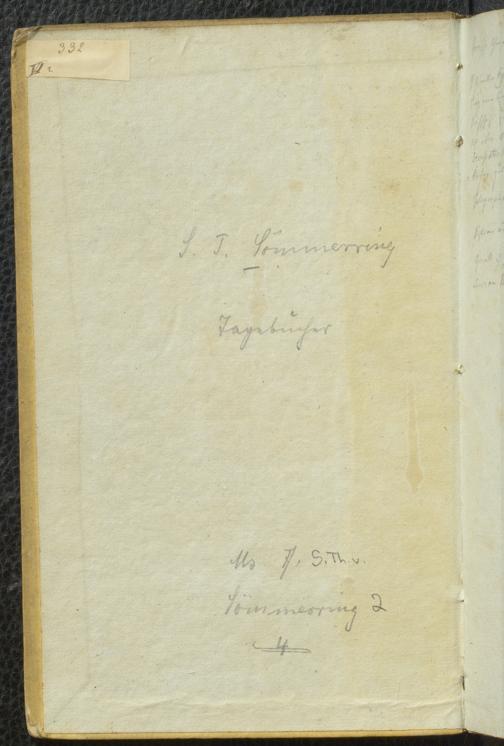 332
S. T. Sömmerring
Tagebücher
Ms S. Th. v.
Sömmerring 2
4